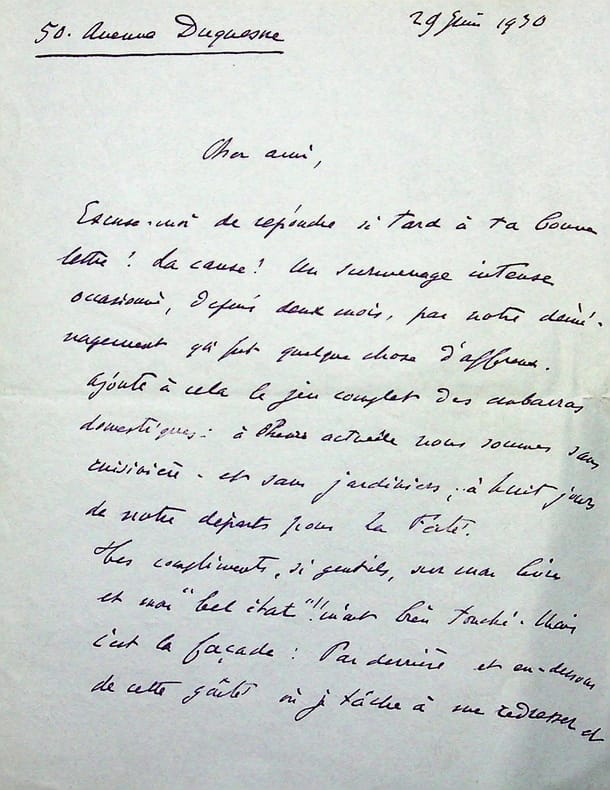 50. Avenue Duquesne
29 juin 1930
Cher ami,
Excuse-moi de répondre si tard à ta bonne
lettre! La cause! Un surmenage intense
occasionné, depuis deux mois, par notre démé-
nagement qui fut quelque chose d'affreux.
Ajoute à cela le jeu complet des embarras
domestiques: à l'heure actuelle nous sommes sans
cuisinière - et sans jardiniers, à huit jours
de notre départ pour la Ferté.
Tes compliments, si gentils, sur mon livre
et mon "bel état"!! m'ont bien touché. Mais
c'est la façade: Par derrière et en-dessous
de cette gaîté où je tâche à me redresser et